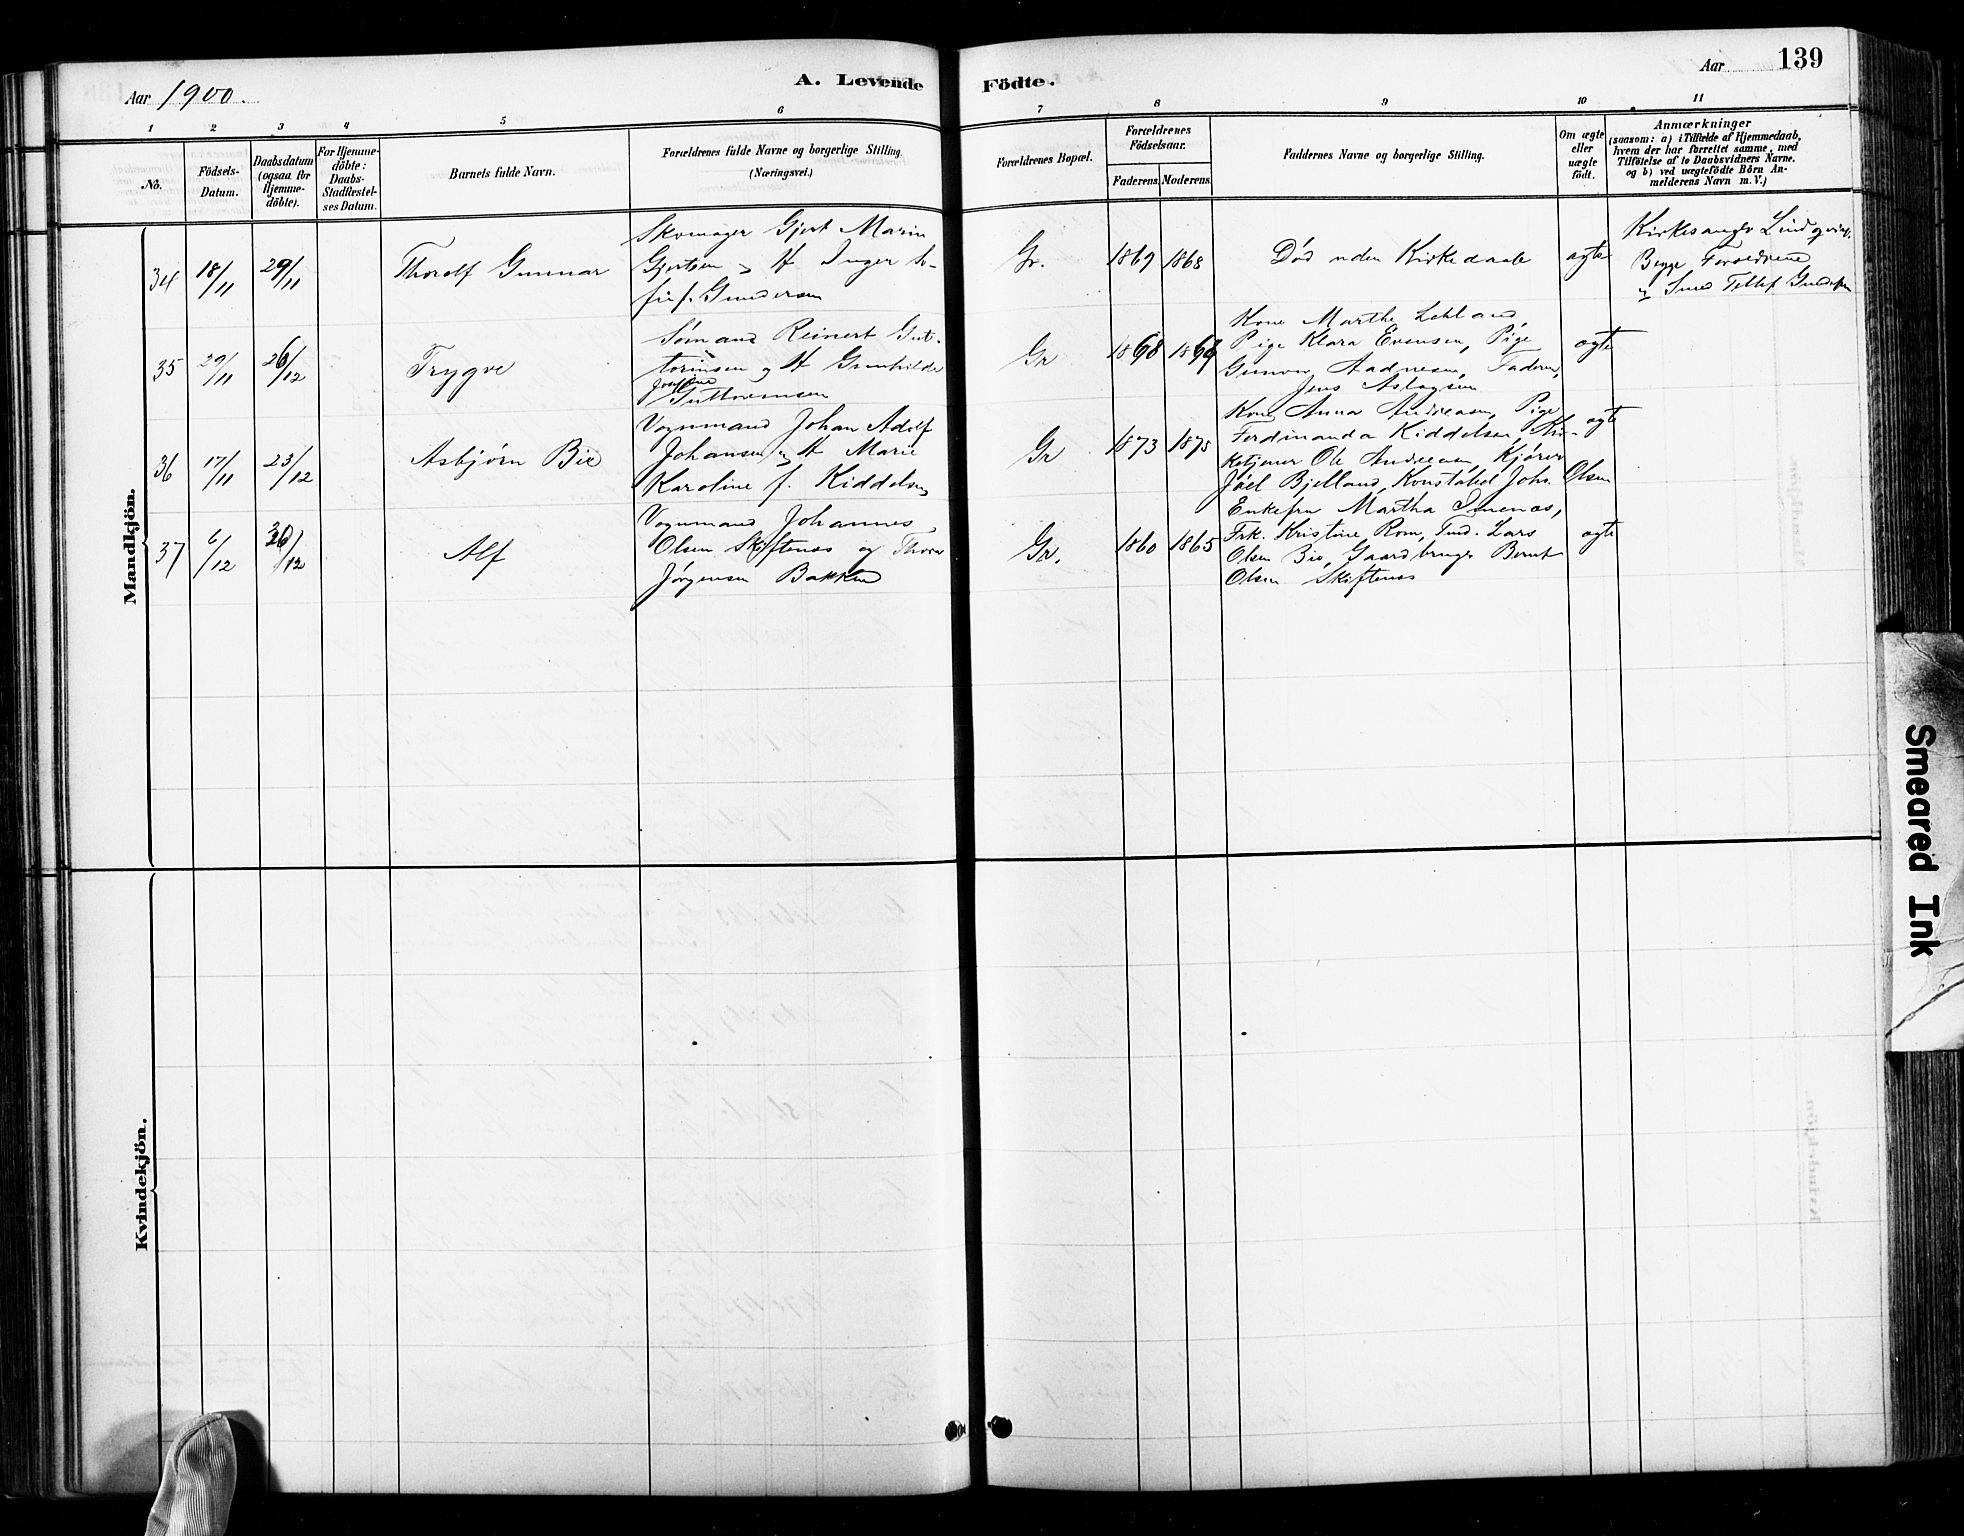 Aar 1900.
A. Levende
Födte.
Aar
139
1 2 3 4 5 6 7 8 9 10 11
No.
Födsels-
Datum.
Daabsdatum
(ogsaa for
Hjemme-
döbte).
For Hjemme-
döbte:
Daabs-
Stadfæstel-
ses Datum.
Barnets fulde Navn.
Forældrenes fulde Navne og borgerlige Stilling
(Næringsvei.)
Forældrenes Bopæl.
Forældrenes
Födselsaar.
Faderens.
Moderens.
Faddernes Navne og borgerlige Stilling.
Om ægte
eller
uægte
födt.
Anmærkninger
(saasom: a) i Tilfælde af Hjemmedaab,
hvem der har forrettet samme, med
Tilföielse af to Daabsvidners Navne.
og b) ved uægtefödte Börn An-
melderens Navn m. V.)
Mandkjön.
34
18/11
29/11
Thorolf Gunnar
Skomager Gjert Marin
Gjertsen og H Inger So-
fie f. Gundersen
Gr.
1869
1868
Död uden Kirkedaab
ægte
Kirkesanger Lindqvist.
Begge Forældrene
og Smed Tellef
35
29/11
26/12
Trygve
Sömand Reinert Gut-
tormsen og H Gunhilde
Josefine
Guttormsen
Gr
1868
1869
Kone Marthe
Pige Klara Evensen, Pige
Gunvor Aadnesen, Faderen,
Jens Aslagsen
ægte
36
17/11
23/12
Asbjörn Bie
Vognmand Johan Adolf
Johansen og H Marie
Karoline f. Kiddelsen
Gr
1873
1875
Kone Anna Andreasen, Pige
Ferdinanda Kiddelsen, Kir-
ketjener Ole Andreasen, Kjörer
Joel Bjelland, Konstabel Johs. Olsen
ægte
37
6/12
26/12
Alf
Vognmand Johannes
Olsen Skiftenes og Thora
Jörgensen Bakken
Gr.
1860
1865
Enkefru Martha
Frk. Kristine Rom, Tmd. Lars
Olsen Bie, Gaardbruger Bernt
Olsen Skiftenes
ægte
Kvindekjön.
Smeared Ink